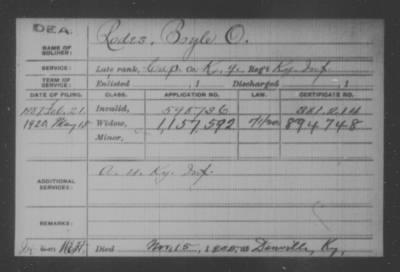 DEA.
NAME OF SOLDIER: Rodes, Boyle O.
SERVICE: Late rank, Cap. Co. K, 4, Reg't Ky. Inf.
TERM OF SERVICE: Enlisted , 1 Discharged , 1
DATE OF FILING. CLASS. APPLICATION NO. LAW. CERTIFICATE NO.
Feb. 21 Invalid, 595736
1920, May 18 Widow, 1,157,592 894748
Minor,
ADDITIONAL SERVICES: Ky. Inf.
REMARKS:
Died Nov. 15, 1 at Danville, Ky.